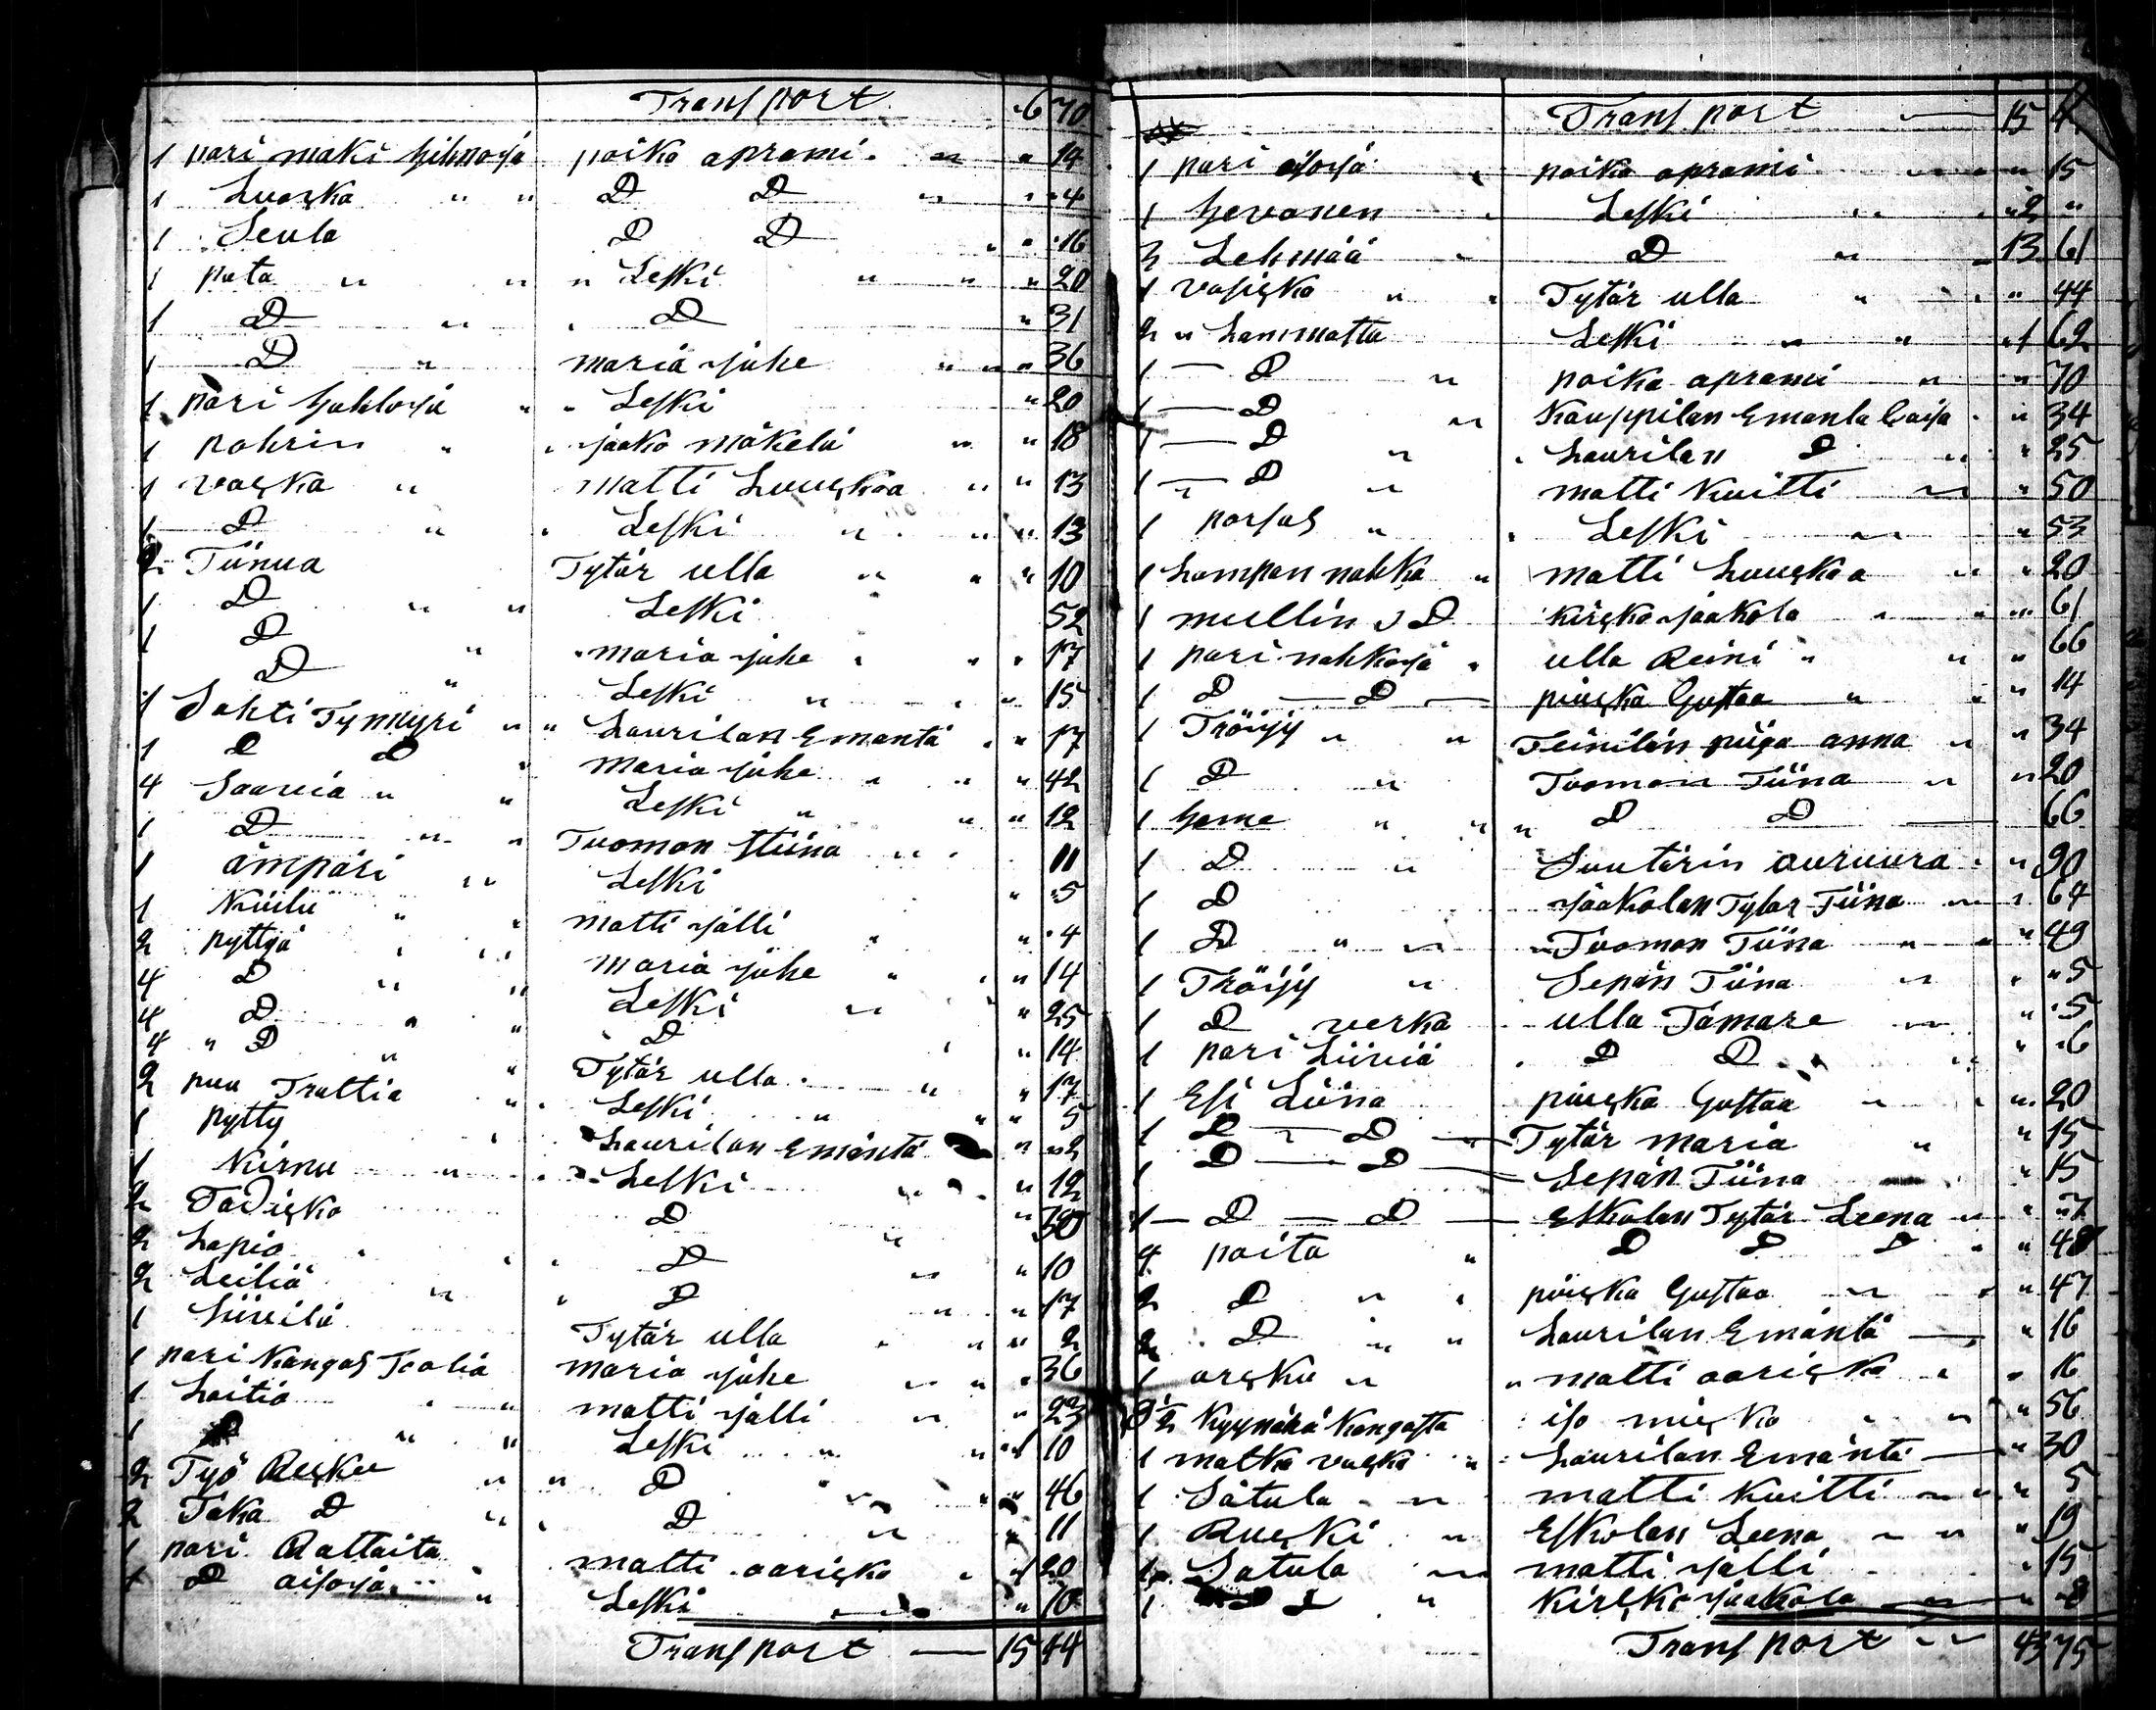 Transport 6 70
1 pari mäki hihnoja poika aprami " " 14
1 Luoska " " D D " " 4
1 Seula D D " " 16
1 pata " " " Leski " " " 20
1 D " " D " 31
1 D " maria juhe " " " 36
1 pari hahloja " " Leski " 20
1 pohrin " " jaako mäkelä " " 18
1 vaska " matti Luuskaa " " 13
1 D " " Leski " " " 13
2 Tiinua Tytär ulla " " " 10
1 D " " Leski 52
1 D " " maria juhe " " " 17
D " Leski " " " 15
1 Sahti Tynnyri " " Laurilan Emäntä " " 17
1 D D " maria juhe " " " 42
4 Saavia " " Leski " " " 12
1 D " " Tuoman Stiina " " 11
1 ämpäri " " Leski " 5
1 Kiilu " " matti jälli " " 4
2 pyttyä " " maria juhe " " " 14
4 D " " Leski " " 25
4 D " " D " " 14
4 " D " " Tytär ulla " " 17
2 puu Trattia " " Leski " " " 5
1 pytty " Laurilan Emäntä " " 2
1 Kirnu " " Leski " " " 12
2 D " 30
2 Lapio " " D " " 10
2 Leiliä " " D " " 17
1 Siivilä Tytär ulla " " " 2
1 pari Kangas Tealia maria juhe " " " 36
1 Laitio " " matti jälli " " 23
1 " " Leski " " 1 10
2 Työ Reskee " " D " " 46
2 Taka D " " D " " 11
1 pari Rattaita matti aariska " 1 20
1 D aisoja " Leski " 10
Transport 15 44
Transport 15 4
1 pari aisoja " poika aprami " " 15
1 hevonen " Leski " " " 2 "
3 Lehmää " D " 13 61
1 vasiska " " Tytär ulla " " " 44
2 " Lammatta Leski " " " 1 62
1 D " poika aprami " " 70
1 D " Kauppilan Emanta Caisa " " 34
1 D " " Laurilan D " " 25
1 " D " matti Kuitti " " 50
1 porsas " " Leski " " 53
1 Lampan nahka " matti Luuskaa " " 20
1 mullin D kirsko jaakola " " " 61
1 pari nahkoja " ulla Reini " " " 66
1 D D piiska Gustaa " " " 14
1 Tröijy " " Teinilän piiga anna " " 34
1 D " Tuoman Tiina " " 20
1 hame " " " D D 66
1 D " Suutärin auruura " " 90
1 D jaakolan Tytar Tiina " " 64
1 D " " " Tuoman Tiina " " " 49
1 Tröijy " Sepän Tiina " " " 5
1 D verka ulla Tamare " " 5
1 pari Liiviä " D D " " " 6
1 Esi Liina piiska Gustaa " " " 20
1 D D Tytär maria " " 15
1 D D Sepän Tiina " 15
1 D D Eskolan Tytär Leena " " " 7
4 paita " D D D " " 48
2 D " " piiska Gustaa " " " 47
2 D " " Laurilan Emäntä " 16
1 arsku " " matti aariska " " 16
3 1/2 Kyynärä Kangasta iso miesko " " " 56
1 matka vaska " Laurilan Emäntä " 30
1 Satula " matti Kuitti " " " 5
1 Ruuski " Eskolan Leena " " " 19
1 Satula " matti jälli " 15
1 " kirsko jaakola " " 8
Transport " " 43 75